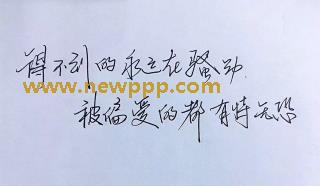 得不到的永远在骚动
www.newppp.com
被偏爱的都有恃无恐